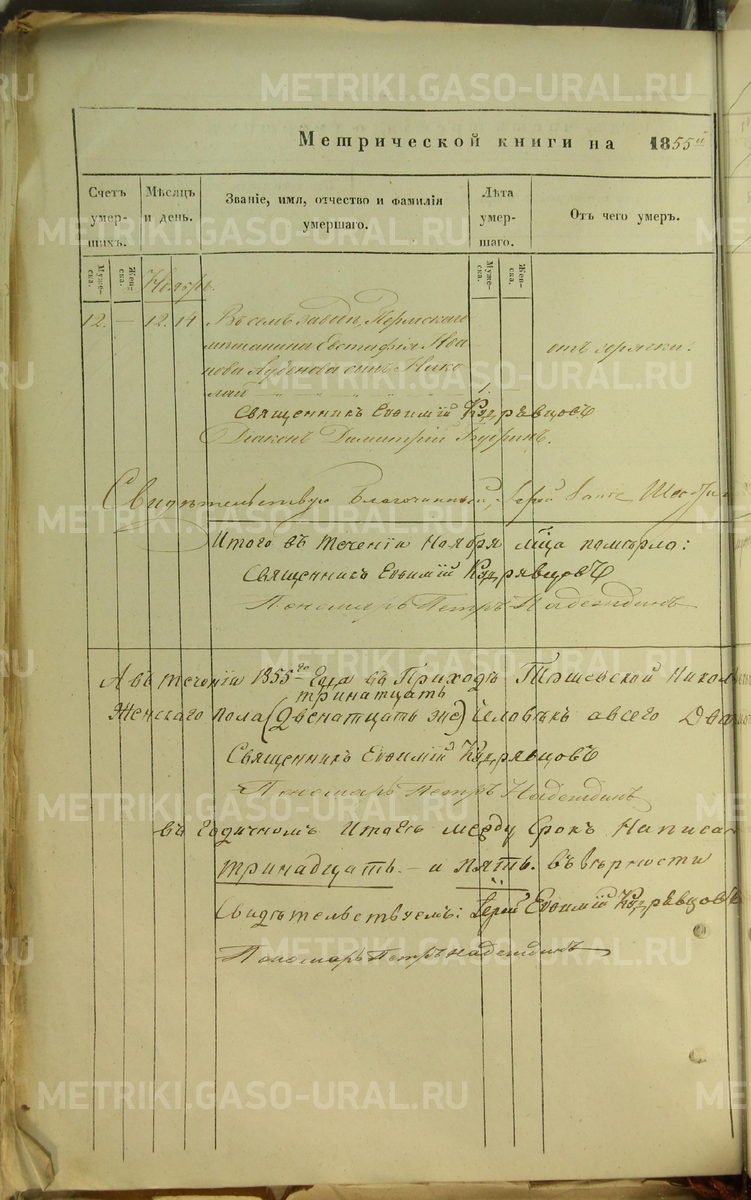 METRIKI.GASO-URAL.RU
Метрической книги на 1855й
Счетъ умер-шихъ.
Мѣсяцъ и день.
Званіе, имя, отчество и фамилія умершаго.
Лѣта умер-шаго.
Отъ чего умеръ.
Муже-ска.
Жен-ска.
Муже-ска.
Жен-ска.
Ноябрь.
12. — 12. 14 Въ семъ заводѣ, Пермскаго
мѣщанина Евстафія Ива
нова сынъ Нико
лай 1. отъ горячки.
Священникъ Евѳимій Кудрявцовъ
Діаконъ Димитрій
Свидѣтельствую Благочинный, Іерей
Итого въ теченіи Ноября мца померло:
Священникъ Евѳимій Кудрявцовъ
Пономарь Петръ Надеждинъ
А въ теченіи 1855го Года въ Приходѣ Никол
тринатцать
Женскаго пола (двенатцать же) Человѣкъ а всего Два
Священникъ Евѳимій Кудрявцовъ
Пономарь Петръ Надеждинъ
въ Годичномъ Итогѣ между Срокъ Написа
тринадцать — и пять. въ вѣрности
Свидѣтельствуемъ: Іерей Евѳимій Кудрявцовъ
Пономарь Петръ Надеждинъ